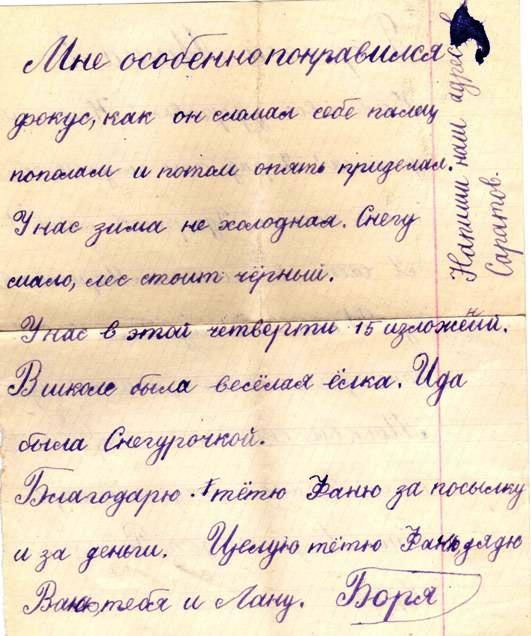 Мне особенно понравился
фокус, как он сломал себе палец
пополам и потом опять приделал.
У нас зима не холодная. Снегу
мало, лес стоит чёрный.
У нас в этой четверти 15 изложений.
В школе была весёлая ёлка. Ида
была Снегурочкой.
Благодарю тётю Фаню за посылку
и за деньги. Целую тётю Фаню, дядю
Ваню, тебя и Лану. Боря
Напиши наш адрес
Саратов.